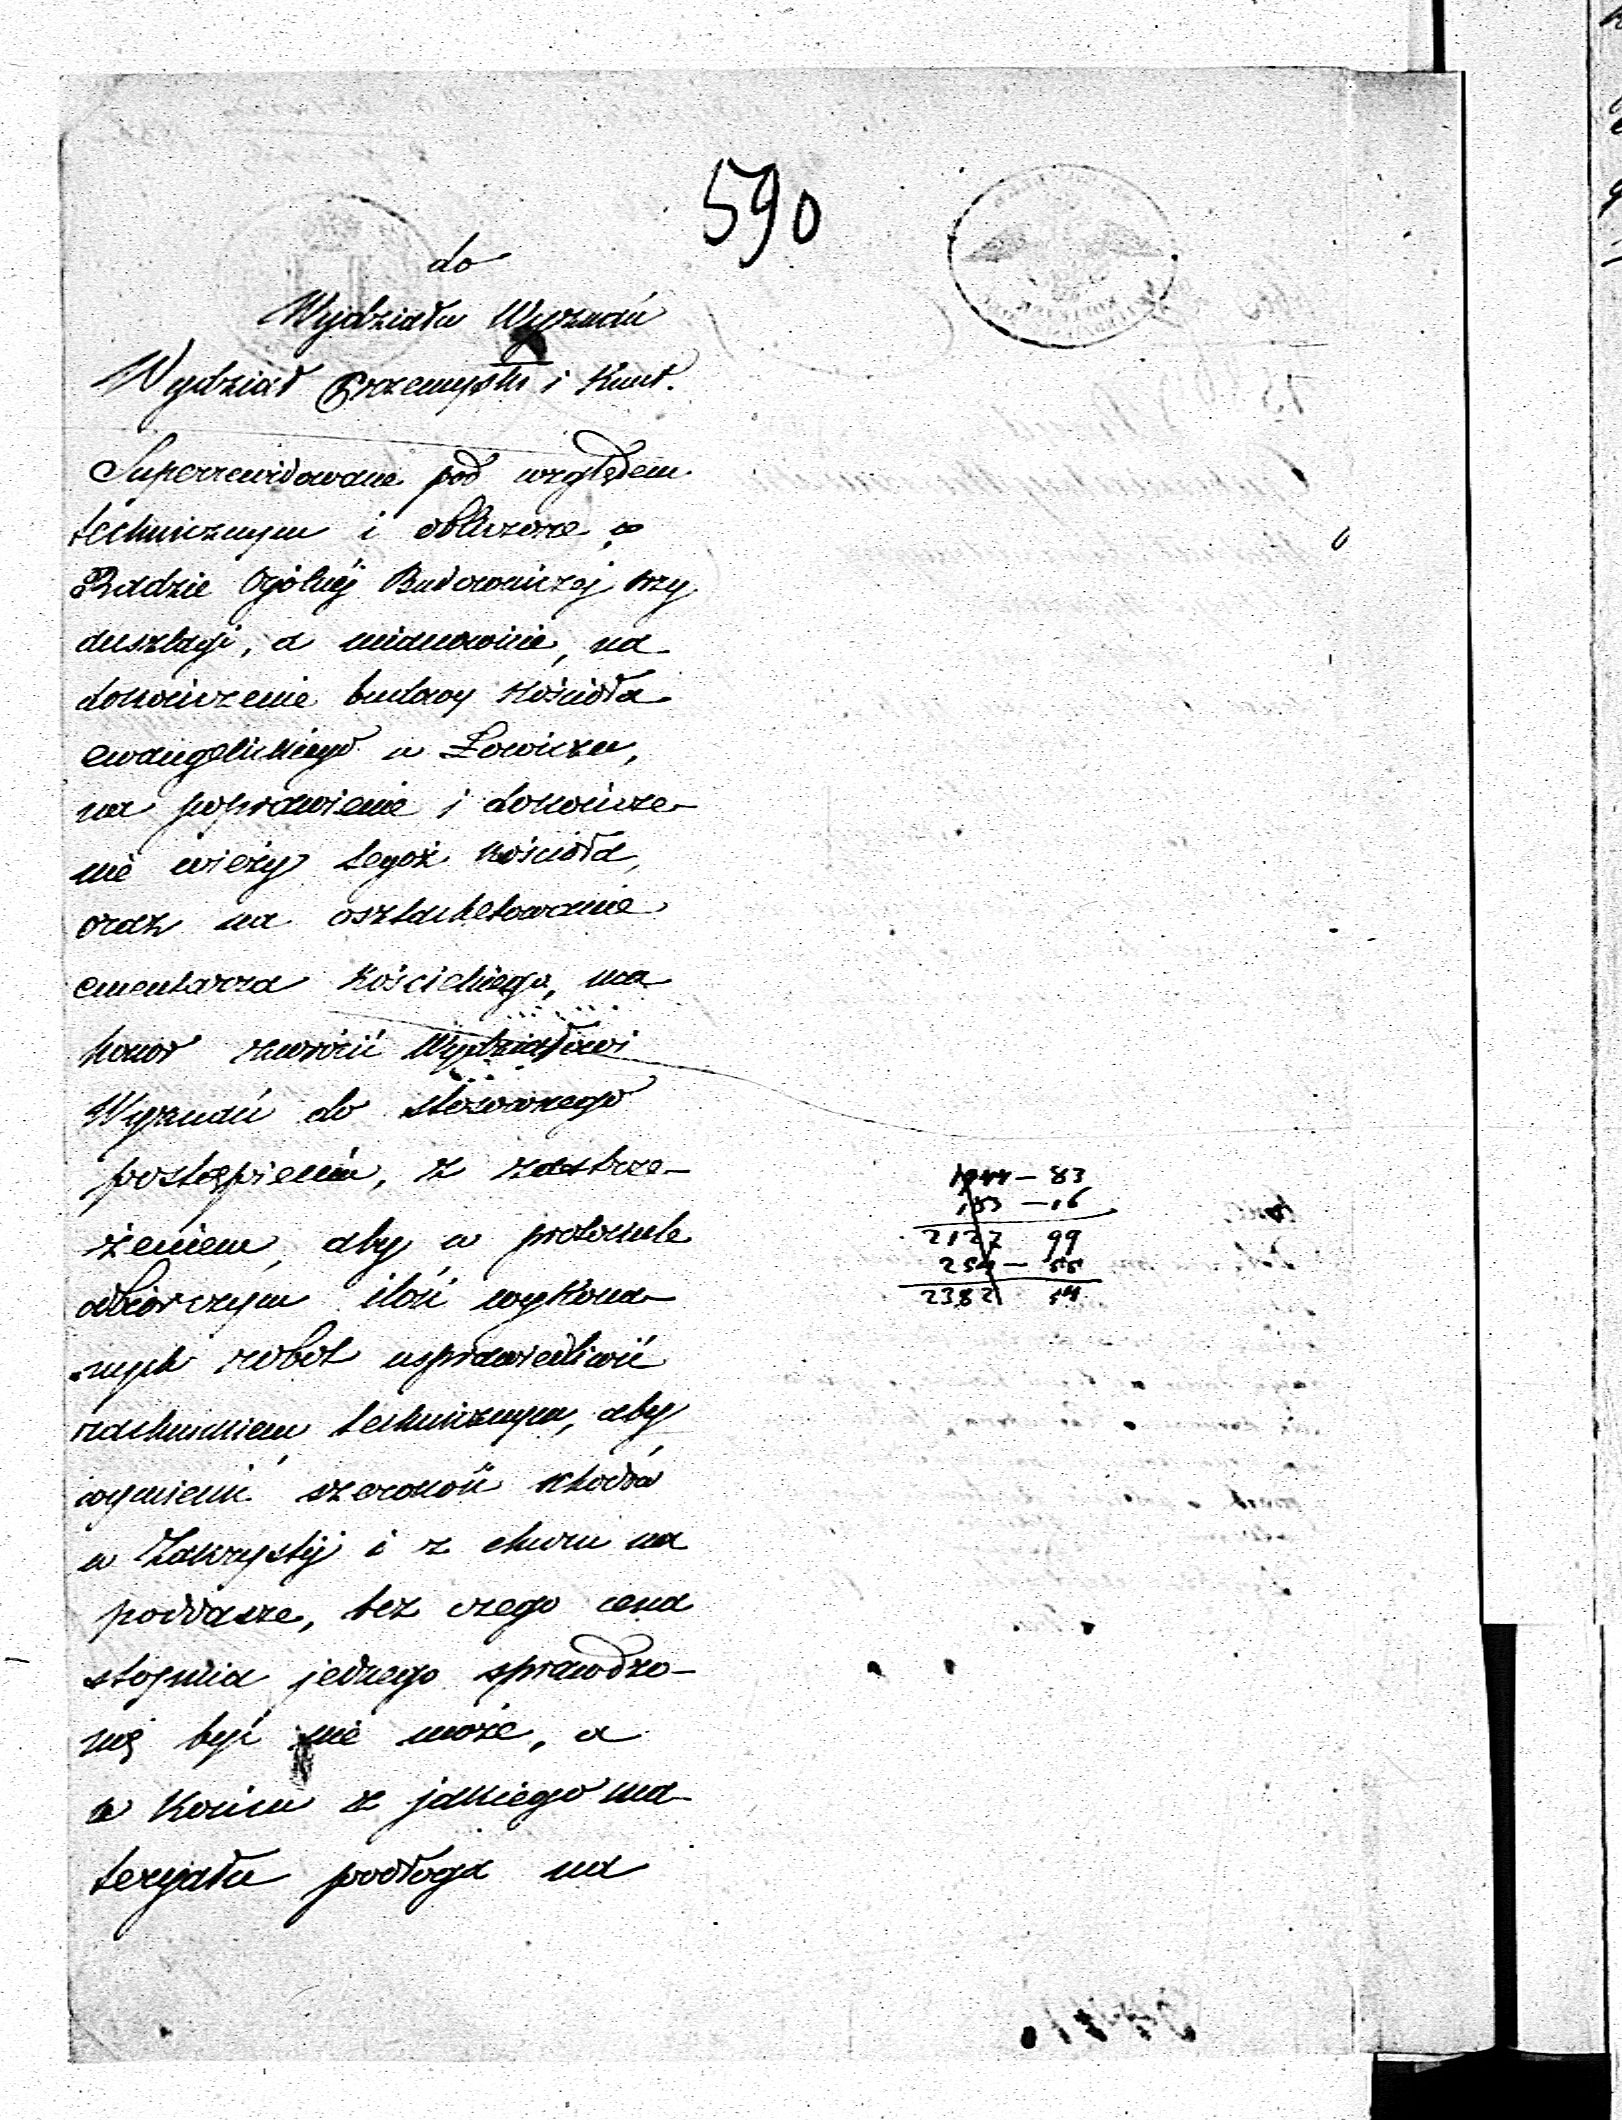 590
do
Wydziału Wyznań
Wydział Przemysłu i Kunst.
Superrewidowane pod względem
technicznym i obliczone w
Radzie Ogólnéj Budowniczéj trzy
anszlagi, a mianowicie, na
dokończenie budowy kościoła
ewangelickiego w Łowiczu,
na poprawienie i dokończe-
nie wieży tegoż kościoła,
oraz na osztachetowanie
cmentarza kościelnego, ma
honor zwrócić Wydziałowi
Wyznań do stosownego
postąpienia, z zastrze-
żeniem, aby w protokule
odbiorczym ilość wykona-
nych robót usprawiedliwić
rachunkiem technicznym, aby
wymienić szerokość schodów
w Zakrystyi i z churu na
poddasze, bez czego cena
stopnia jednego sprawdzo-
ną być nie może, a
w końcu z jakiego ma-
teryału podłoga na
1944 - 83
183 - 16
2127 99
254 - 55
2382 54